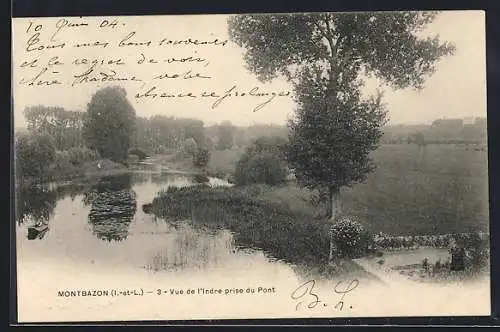 10 Juin 04.
Tous mes bons souvenirs
et le regret de voir,
chère Madame, votre
absence se prolonger
MONTBAZON (I.-et-L.) — 3 - Vue de l'Indre prise du Pont